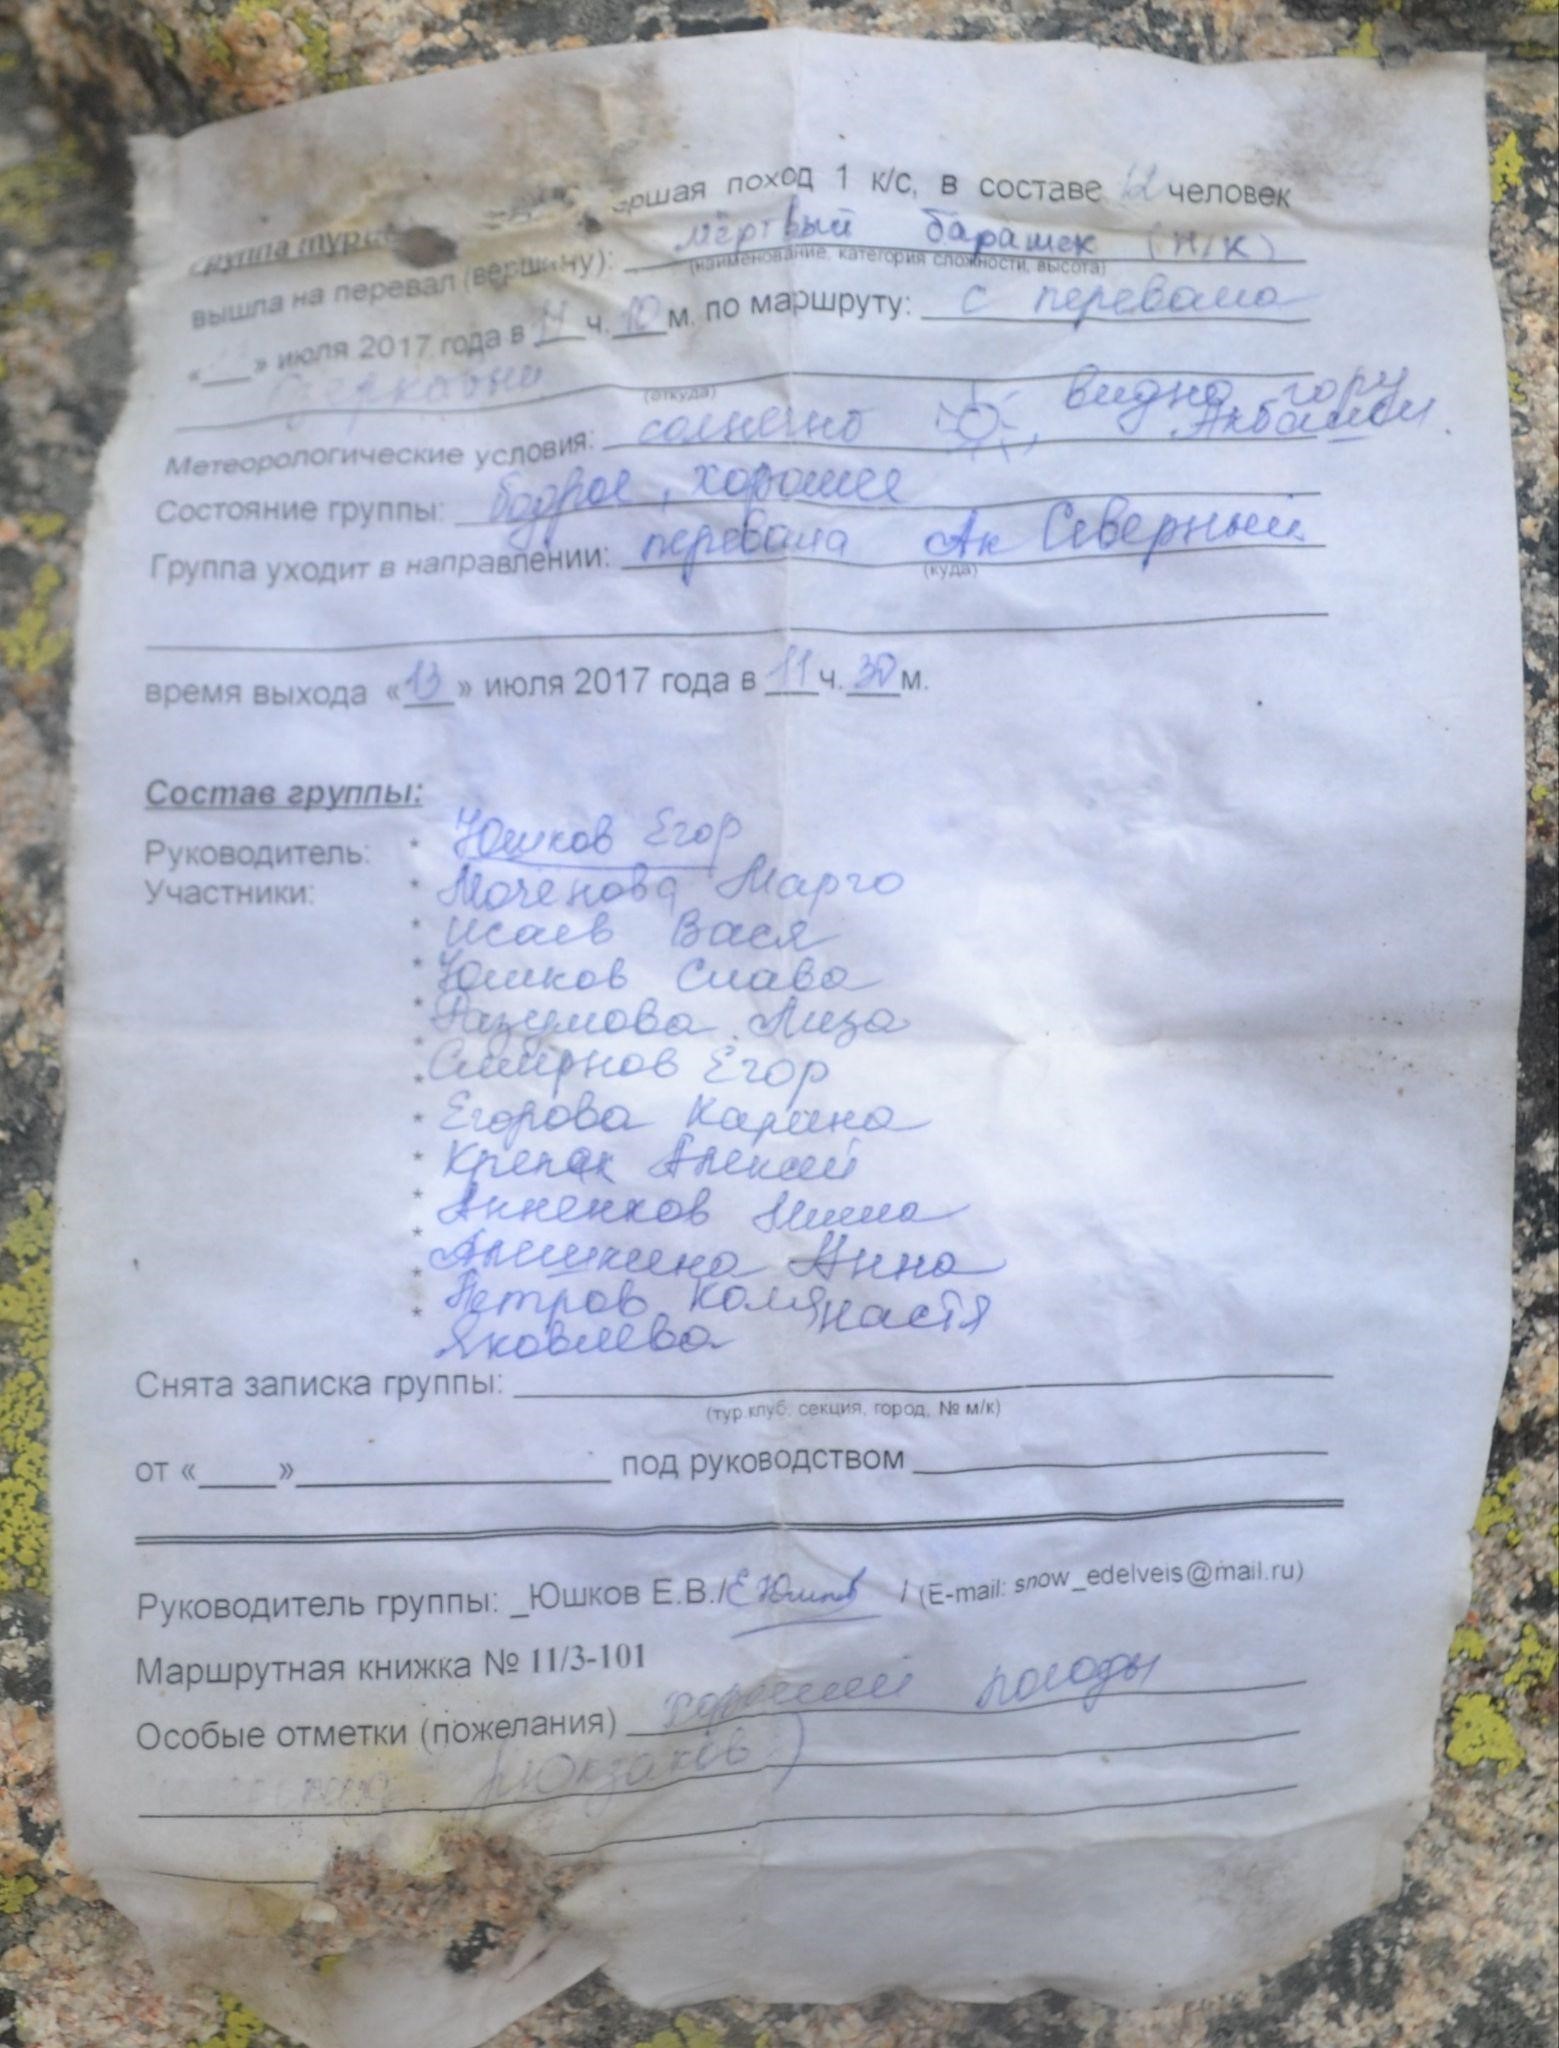 ршая поход 1 к/с, в составе 12 человек
вышла на перевал (вершину): мёртвый барашек (н/к)
(наименование, категория сложности, высота)
«___» июля 2017 года в 11 ч. 10 м. по маршруту: с перевала
(откуда)
Метеорологические условия: солнечно видно гору
Состояние группы: бодрое, хорошее
Группа уходит в направлении: перевала Ак Северный
(куда)
время выхода «13» июля 2017 года в 11 ч. 30 м.
Состав группы:
Руководитель: * Юшков Егор
Участники: * Моченова Марго
* Исаев Вася
* Юшков Слава
* Разумова Лиза
* Смирнов Егор
* Егорова Карина
* Крепак Алексей
* Анненков Миша
* Алишкина Анна
* Петров Коля
* Яковлева Настя
Снята записка группы: ____
(тур.клуб, секция, город, № м/к)
от «____»____ под руководством ____
Руководитель группы: _Юшков Е.В./ЕЮшков / (E-mail: snow_edelveis@mail.ru)
Маршрутная книжка № 11/3-101
Особые отметки (пожелания) хорошей погоды
рюкзаков)